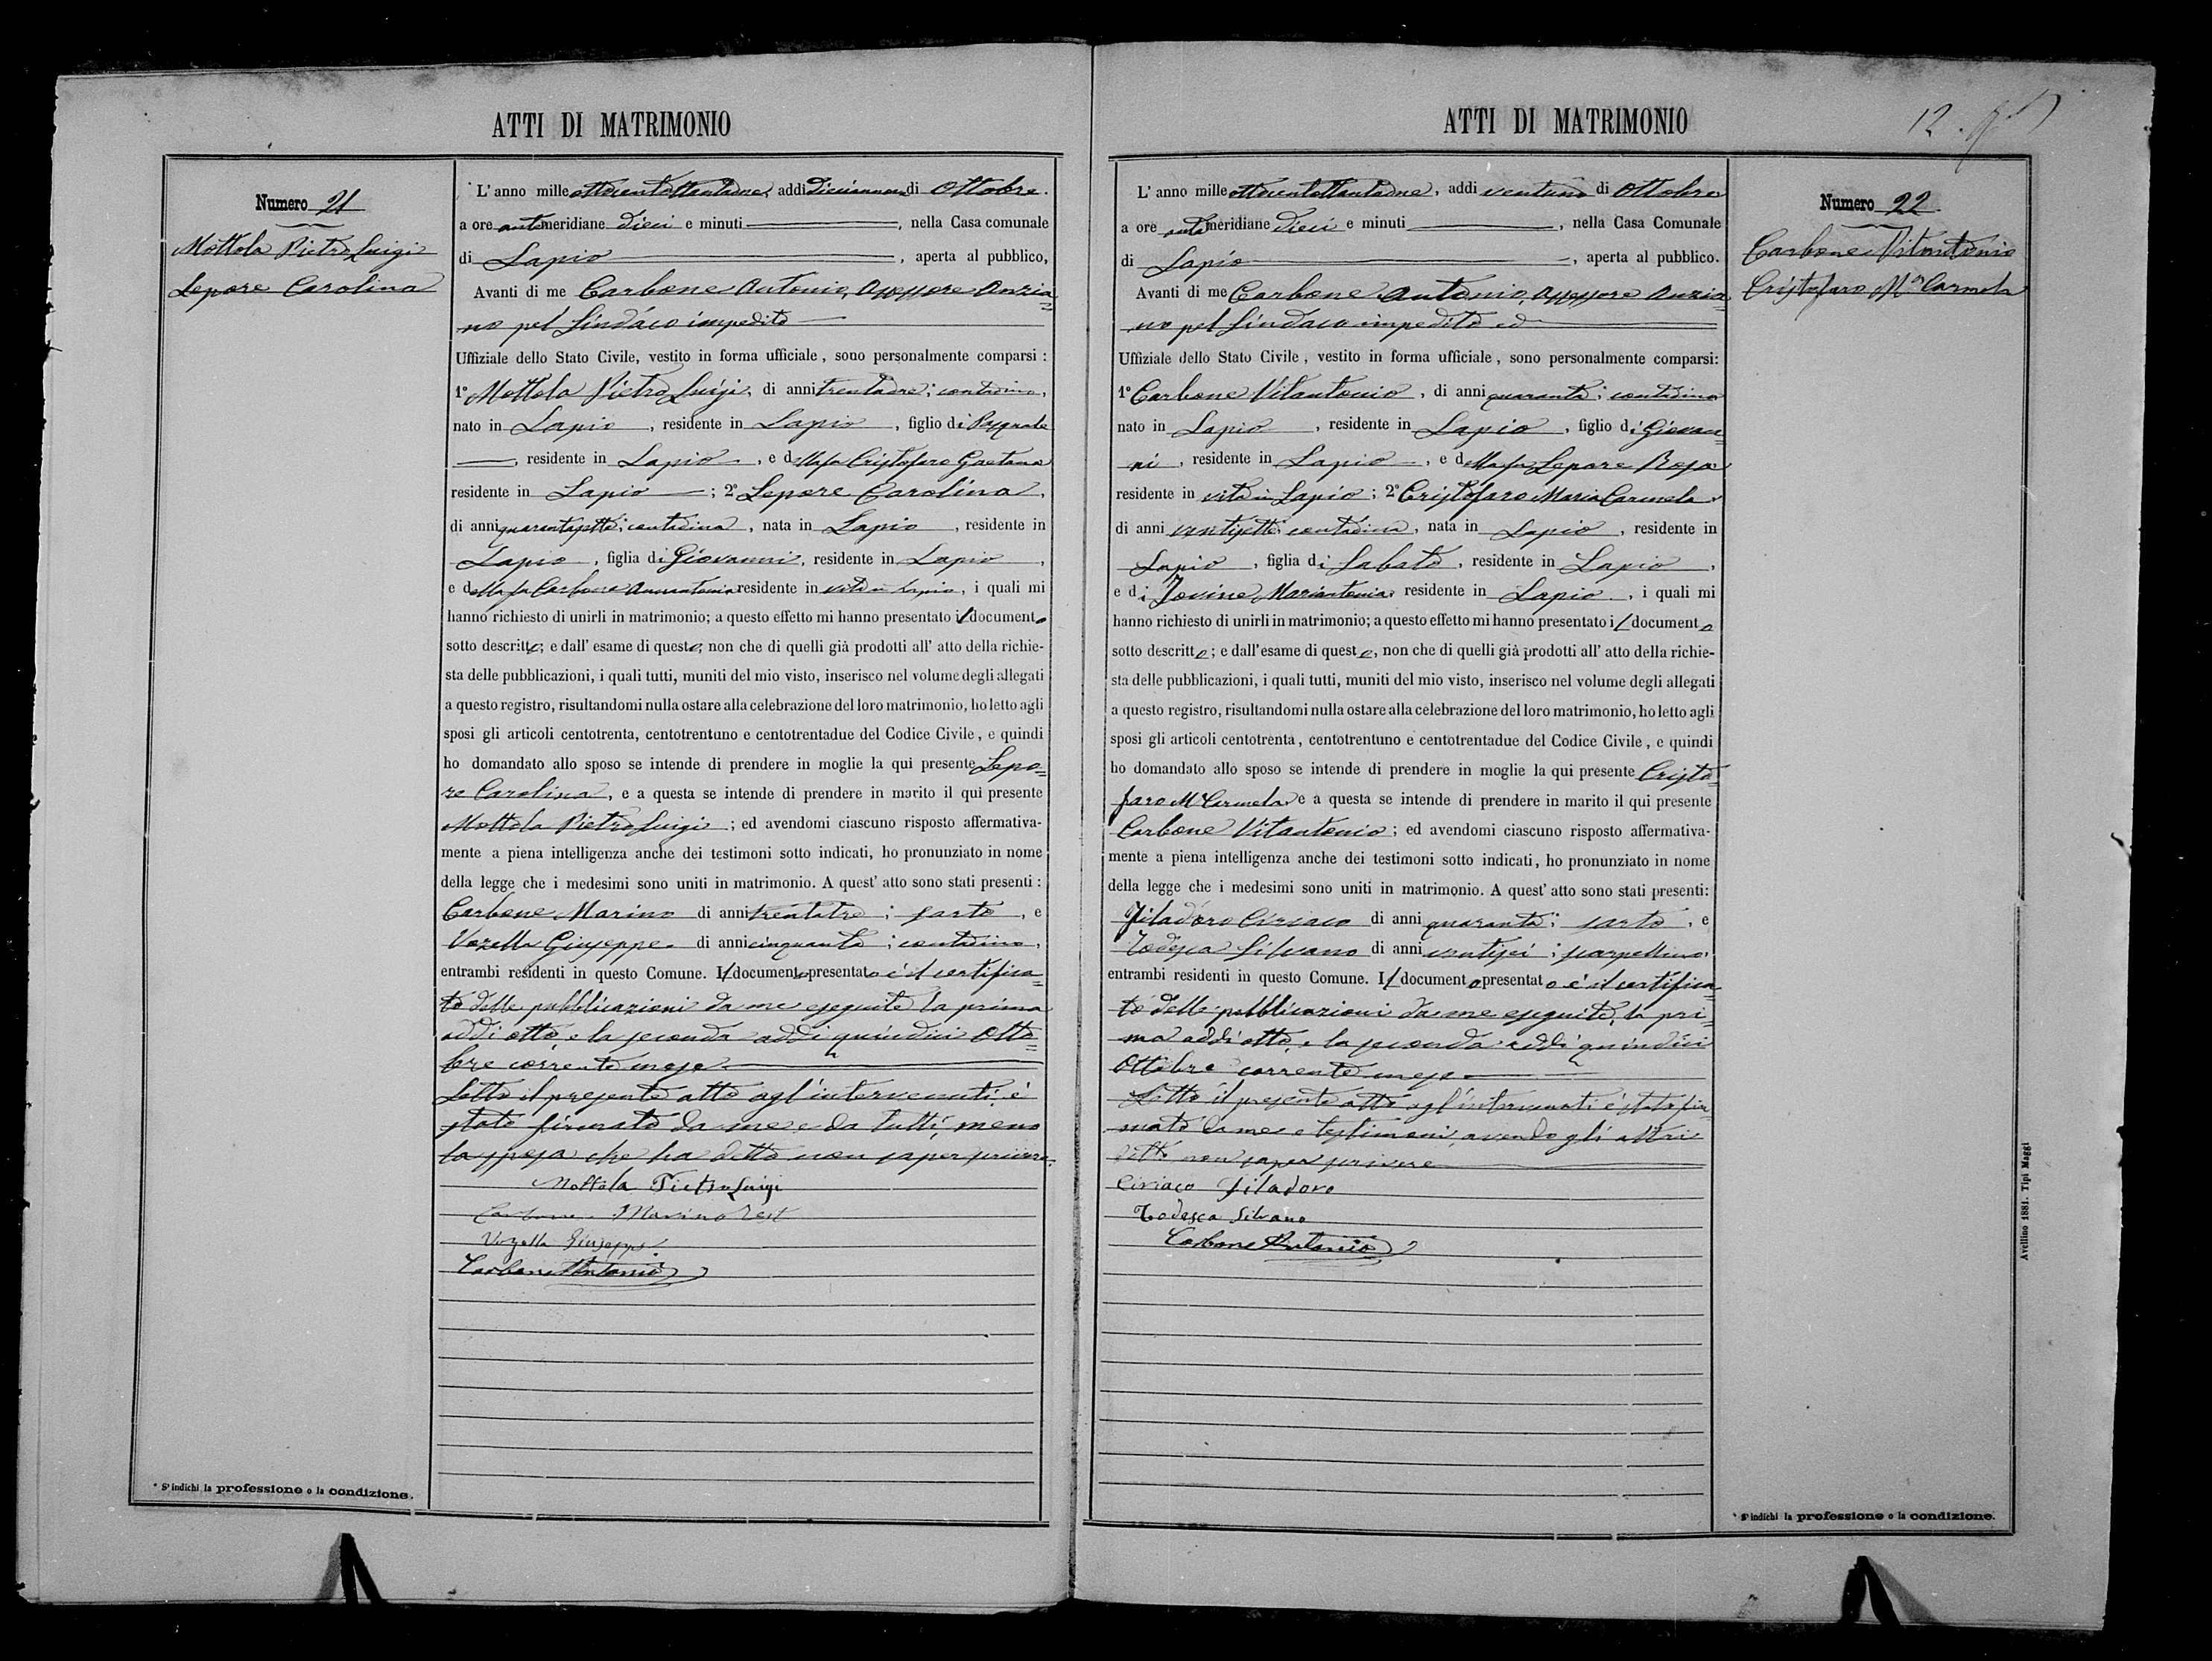 ATTI DI MATRIMONIO
Numero 21
Mottola Pietro Luigi
Lepore Carolina
L' anno mille ottocentottantadue, addi diciannove di Ottobre.
a ore antimeridiane dieci e minuti , nella Casa comunale
di Lapio , aperta al pubblico,
Avanti di me Carbone Antonio, Assessore Anzia=
no pel Sindaco impedito
Uffiziale dello Stato Civile, vestito in forma ufficiale, sono personalmente comparsi :
1° Mottola Pietro Luigi, di anni trentadue; contadino,
nato in Lapio , residente in Lapio , figlio di Pasquale
, residente in Lapio , e della fu Cristofaro Gaetana
residente in Lapio ; 2° Lepore Carolina,
di anni quarantasette; contadina, nata in Lapio , residente in
Lapio , figlia di Giovanni, residente in Lapio ,
e della fu Carbone Annantonia residente in vita in Lapio, i quali mi
hanno richiesto di unirli in matrimonio; a questo effetto mi hanno presentato il documento
sotto descritto; e dall' esame di questo, non che di quelli già prodotti all' atto della richie-
sta delle pubblicazioni, i quali tutti, muniti del mio visto, inserisco nel volume degli allegati
a questo registro, risultandomi nulla ostare alla celebrazione del loro matrimonio, ho letto agli
sposi gli articoli centotrenta, centotrentuno e centotrentadue del Codice Civile, e quindi
ho domandato allo sposo se intende di prendere in moglie la qui presente Lepo=
re Carolina, e a questa se intende di prendere in marito il qui presente
Mottola Pietro Luigi ; ed avendomi ciascuno risposto affermativa-
mente a piena intelligenza anche dei testimoni sotto indicati, ho pronunziato in nome
della legge che i medesimi sono uniti in matrimonio. A quest' atto sono stati presenti :
Carbone Marino di anni trentatre ; sarto , e
Vozella Giuseppe di anni cinquanta ; contadino,
entrambi residenti in questo Comune. Il documento presentato è il certifica=
to delle pubblicazioni da me eseguite la prima
addi otto, e la seconda addi quindici Otto=
bre corrente mese
Letto il presente atto agl'intervenuti, è
stato firmato da me e da tutti, meno
la sposa che ha detto non saper scrivere.
Mottola Pietro Luigi
Carbone Marino test
Vozella Giuseppe
Carbone Antonio
* S' indichi la professione o la condizione.
ATTI DI MATRIMONIO
12.
Numero 22
Carbone Vitantonio
Cristofaro Mª Carmela
L' anno mille ottocentottantadue, addi ventuno di Ottobre
a ore antimeridiane dieci e minuti , nella Casa Comunale
di Lapio , aperta al pubblico.
Avanti di me Carbone Antonio, Assessore Anzia=
no pel Sindaco impedito ed
Uffiziale dello Stato Civile, vestito in forma ufficiale, sono personalmente comparsi:
1° Carbone Vitantonio , di anni quaranta; contadino
nato in Lapio , residente in Lapio , figlio di Giovan=
ni , residente in Lapio , e della fu Lepore Rosa
residente in vita in Lapio ; 2° Cristofaro Maria Carmela,
di anni ventisette; contadina, nata in Lapio , residente in
Lapio , figlia di Sabato , residente in Lapio ,
e di Jovine Mariantonia, residente in Lapio , i quali mi
hanno richiesto di unirli in matrimonio; a questo effetto mi hanno presentato il documento
sotto descritto ; e dall' esame di questo , non che di quelli già prodotti all' atto della richie-
sta delle pubblicazioni, i quali tutti, muniti del mio visto, inserisco nel volume degli allegati
a questo registro, risultandomi nulla ostare alla celebrazione del loro matrimonio, ho letto agli
sposi gli articoli centotrenta, centotrentuno e centotrentadue del Codice Civile, e quindi
ho domandato allo sposo se intende di prendere in moglie la qui presente Cristo=
faro Mª Carmela, e a questa se intende di prendere in marito il qui presente
Carbone Vitantonio ; ed avendomi ciascuno risposto affermativa-
mente a piena intelligenza anche dei testimoni sotto indicati, ho pronunziato in nome
della legge che i medesimi sono uniti in matrimonio. A quest' atto sono stati presenti:
Filadoro Ciriaco di anni quaranta ; sarto , e
Todesca Silvano di anni ventisei ; scarpellino,
entrambi residenti in questo Comune. Il documento presentato è il certifica=
to delle pubblicazioni da me eseguite, la pri=
ma addi otto, e la seconda addi quindici
Ottobre corrente mese
Letto il presente atto agl'intervenuti è stato fir=
mato da me e testimoni, avendo gli altri
detto non saper scrivere
Ciriaco Filadoro
Todesca Silvano
Carbone Antonio
* S' indichi la professione o la condizione.
Avellino 1881. Tipi Maggi